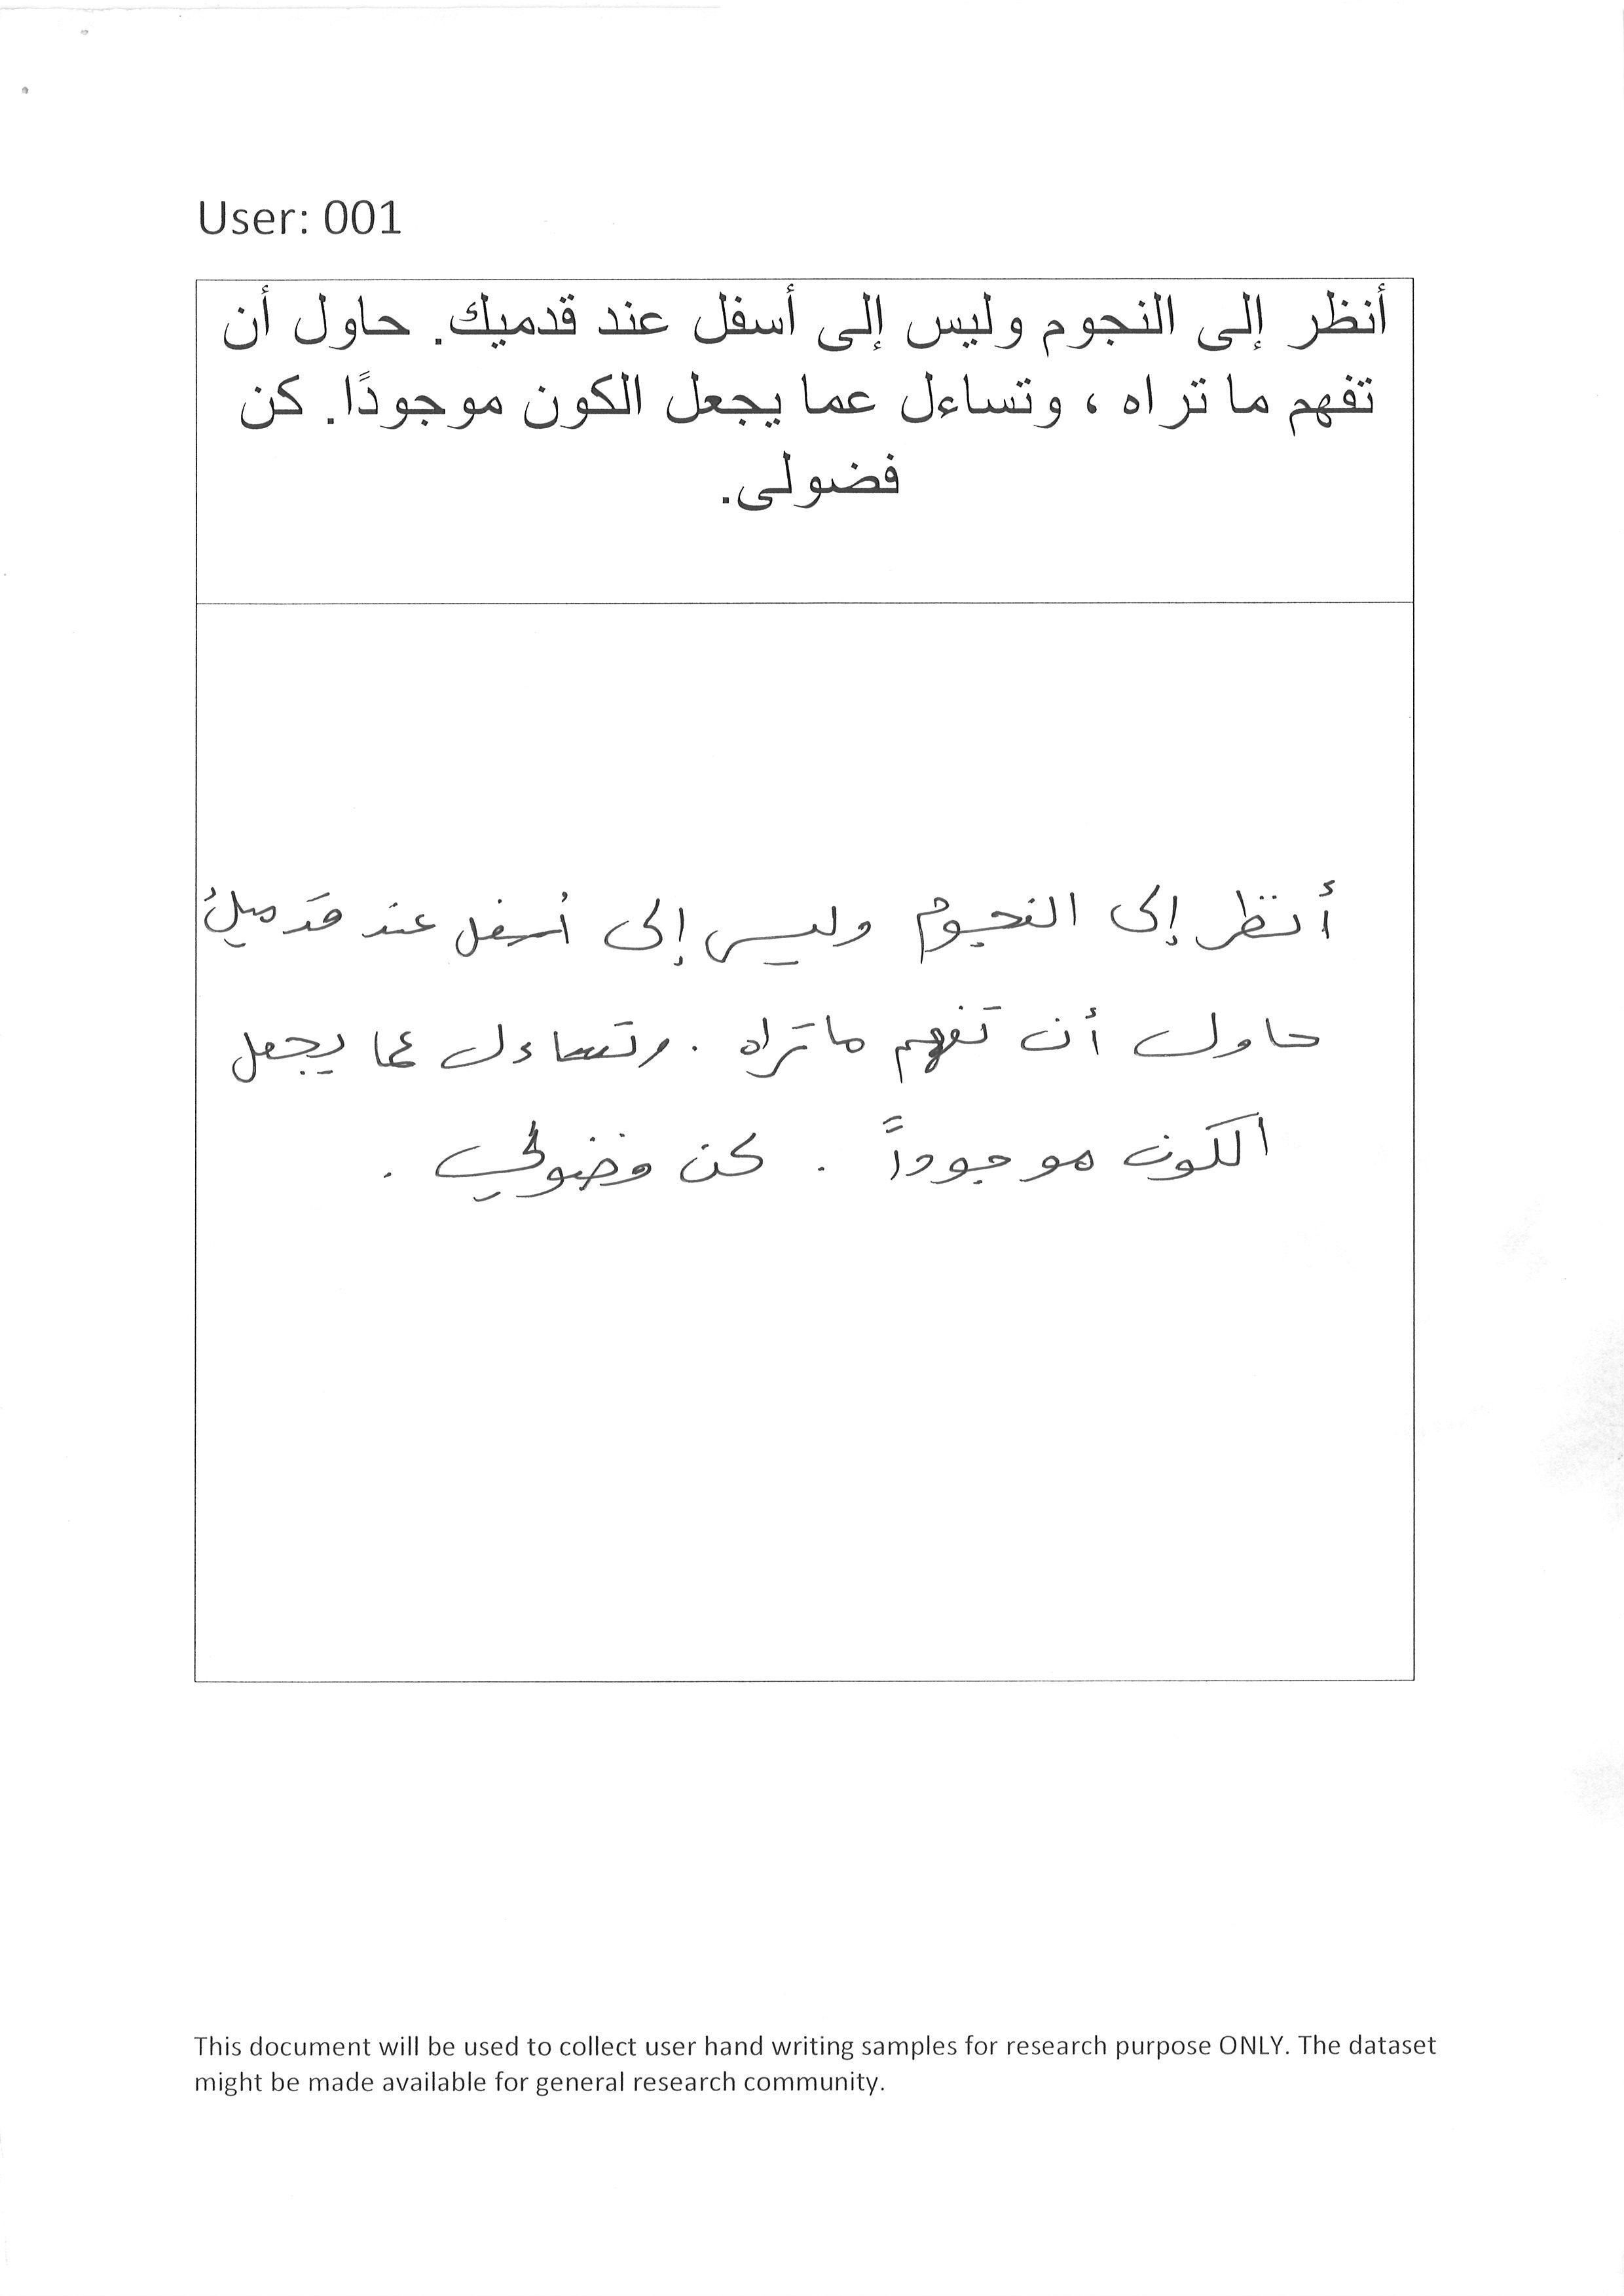 User: 001
أنظر إلى النجوم وليس إلى أسفل عند قدميك. حاول أن
تفهم ما تراه ، وتساءل عما يجعل الكون موجودًا. كن
فضولى.
أنظر إلى النجوم وليس إلى أسفل عند قدميك
حاول أن تفهم ما تراه . وتساءل عما يجعل
الكون موجوداً . كن فضولي .
This document will be used to collect user hand writing samples for research purpose ONLY. The dataset
might be made available for general research community.